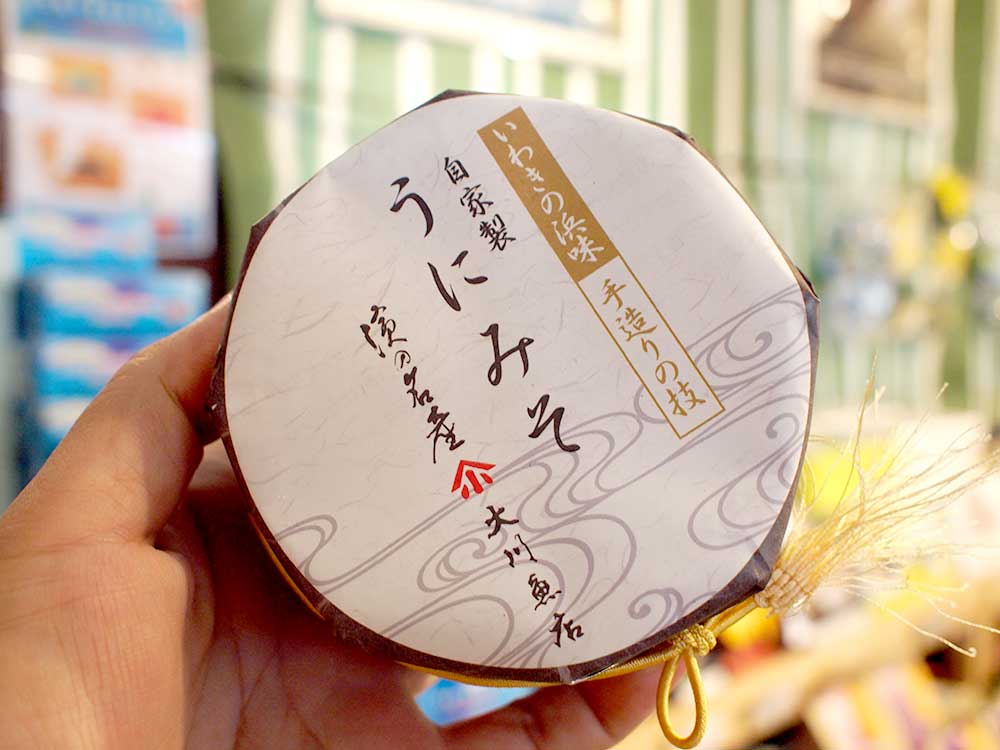 いわきの浜味
手造りの技
自家製
うにみそ
濱の名産
大川魚店